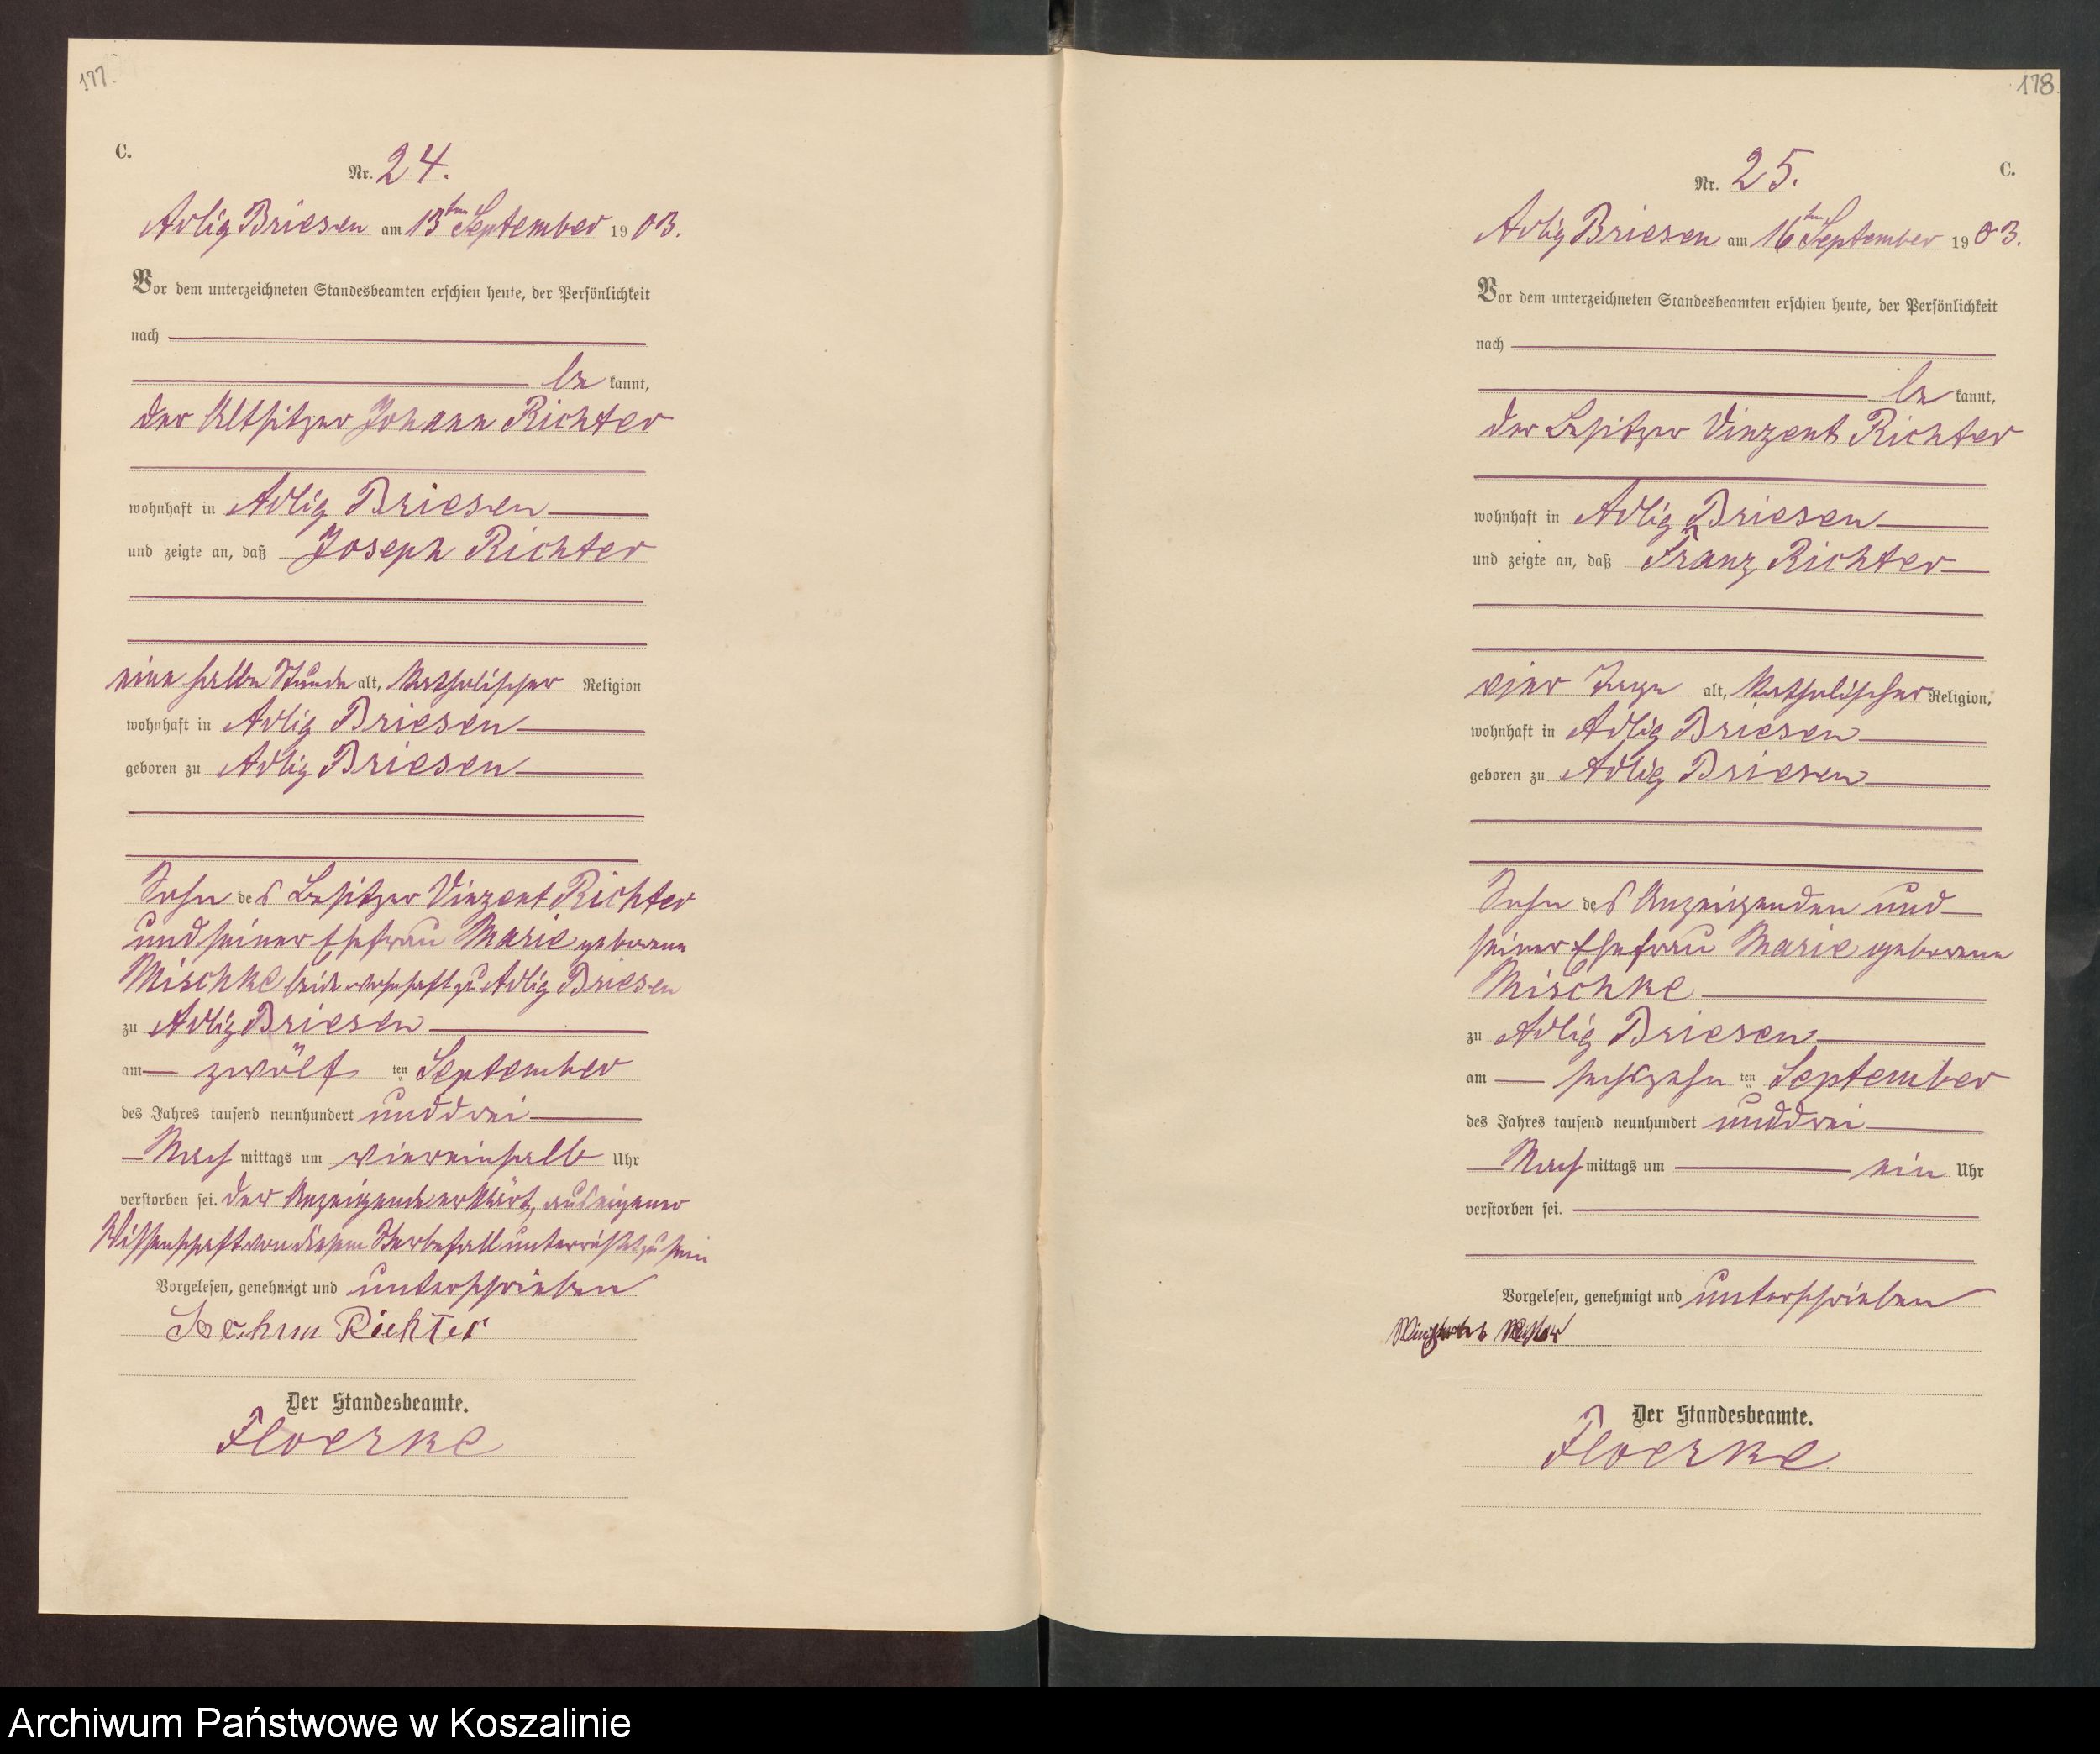 177.
C.
Nr. 24.
Adlig Briesen am 13ten September 1903.
Vor dem unterzeichneten Standesbeamten erschien heute, der Persönlichkeit
nach
be kannt,
der Altsitzer Johann Richter
wohnhaft in Adlig Briesen
und zeigte an, daß Joseph Richter
eine halbe Stunde alt, katholischer Religion
wohnhaft in Adlig Briesen
geboren zu Adlig Briesen
Sohn des Besitzer Vinzent Richter
und seiner Ehefrau Marie geborene
Mischke beide wohnhaft zu Adlig Briesen
zu Adlig Briesen
am zwölf ten September
des Jahres tausend neunhundert unddrei
Nach mittags um viereinhalb Uhr
verstorben sei. Der Anzeigende erklärt, aus eigener
Wissenschaft von diesem Sterbefall unterrichtet zu sein
Vorgelesen, genehmigt und unterschrieben
Richter
Der Standesbeamte.
Floerke
178.
C.
Nr. 25.
Adlig Briesen am 16ten September 1903.
Vor dem unterzeichneten Standesbeamten erschien heute, der Persönlichkeit
nach
be kannt,
der Besitzer Vinzent Richter
wohnhaft in Adlig Briesen
und zeigte an, daß Franz Richter
vier Tage alt, katholischer Religion,
wohnhaft in Adlig Briesen
geboren zu Adlig Briesen
Sohn des Anzeigenden und
seiner Ehefrau Marie geborene
Mischke
zu Adlig Briesen
am sechszehn ten September
des Jahres tausend neunhundert unddrei
Nach mittags um ein Uhr
verstorben sei.
Vorgelesen, genehmigt und unterschrieben
Der Standesbeamte.
Floerke.
Archiwum Państwowe w Koszalinie